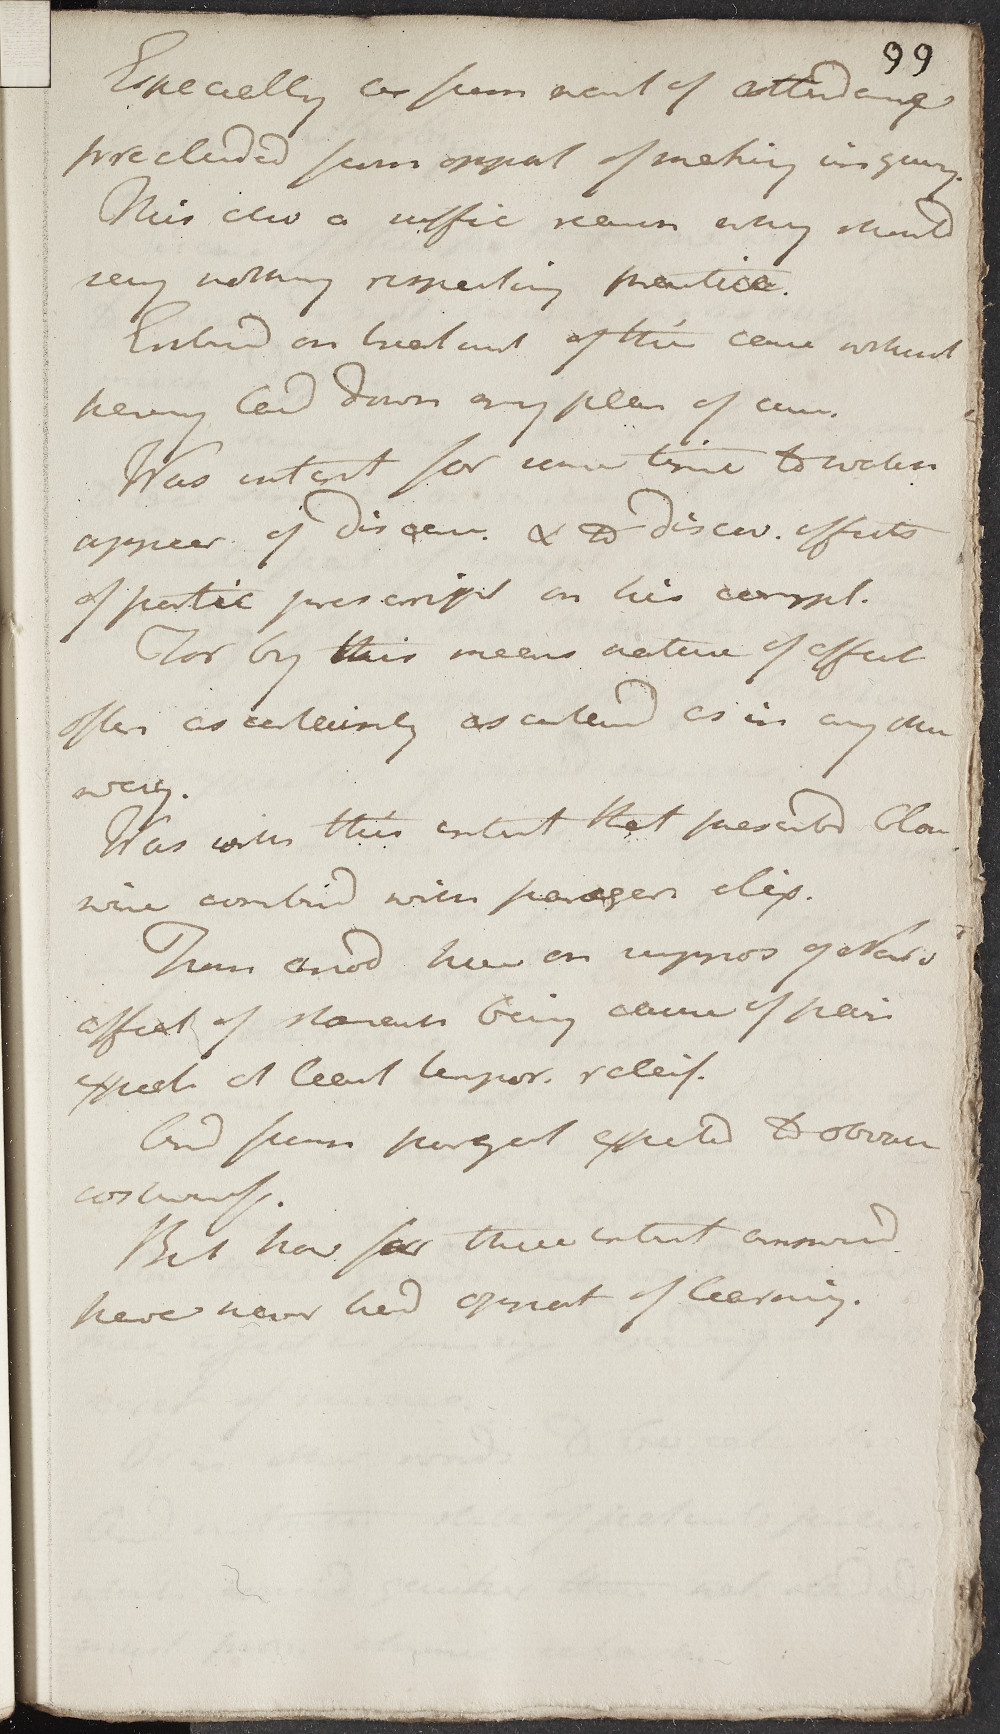 99
Especially as from want of attendance
precluded from opport of making inquiry.
This also a suffic reason why should
say nothing respecting practice.
Enterd on treatment of this case without
having laid down any plan of cure.
Was intent for some time to watch
appear. of disease. & to discov. effects
of partic prescript on his compl.
For by this means nature of affect
often as certainly ascertaind as in any other
way.
Was with this intent that prescribd
wine combind with paregor elix.
From anod here on suppos of
affect of stomach being cause of pain
expect at least tempor. releif.
And from purgat expected to obviate
costiveness.
But how far these intent answerd
have never had opport of learning.